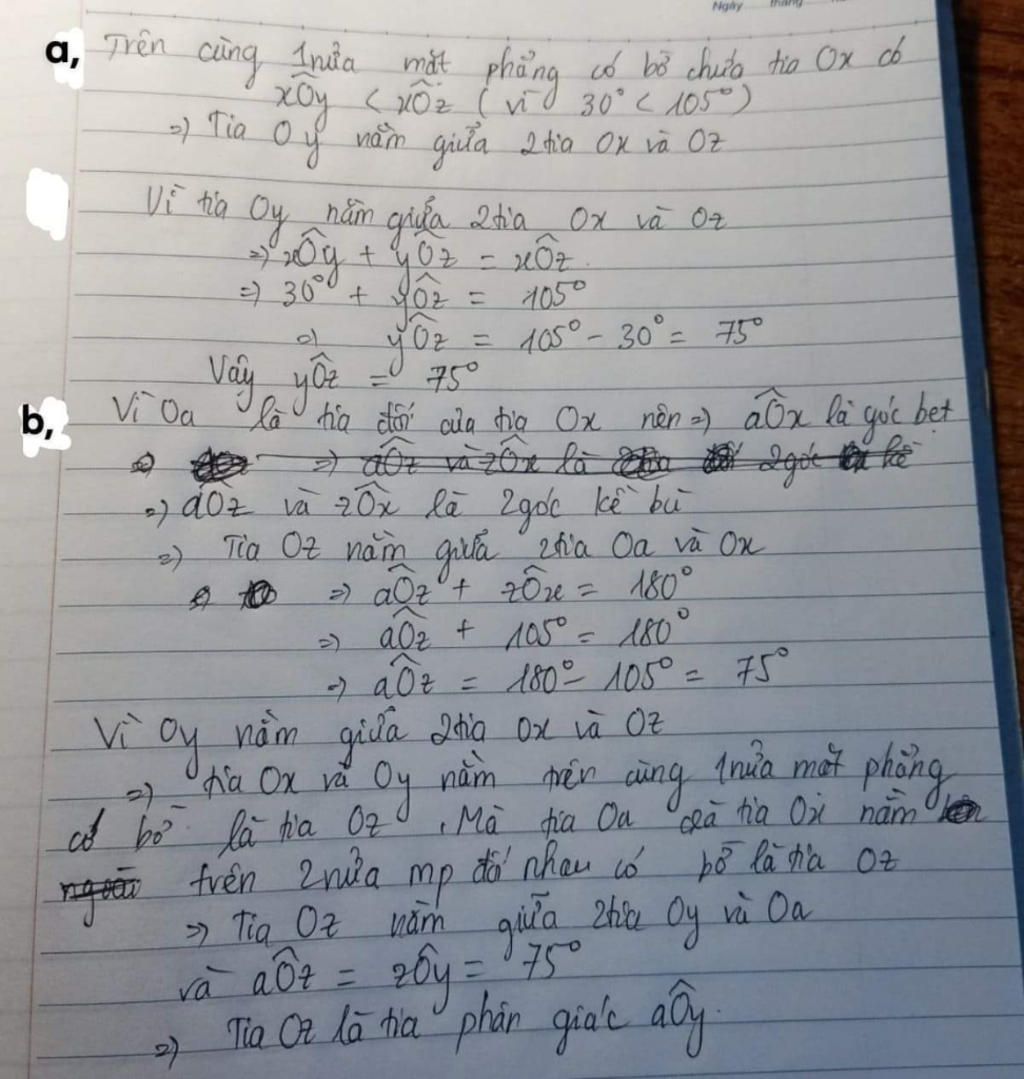 Ngày tháng
a, Trên cùng 1 nửa mặt phẳng có bờ chứa tia Ox có
xÔy < xÔz (vì 30° < 105°)
=) Tia Oy nằm giữa 2 tia Ox và Oz
Vì tia Oy nằm giữa 2 tia Ox và Oz
=) xÔy + yÔz = xÔz.
=) 30° + yÔz = 105°
=) yÔz = 105° - 30° = 75°
Vậy yÔz = 75°
b, Vì Oa là tia đối của tia Ox nên =) aÔx là góc bẹt
=) aÔz và zÔx là 2 góc kề
=) aOz và zÔx là 2 góc kề bù
=) Tia Oz nằm giữa 2 tia Oa và Ox
=) aÔz + zÔx = 180°
=) aÔz + 105° = 180°
=) aÔz = 180° - 105° = 75°
Vì Oy nằm giữa 2 tia Ox và Oz
=) tia Ox và Oy nằm trên cùng 1 nửa mặt phẳng
có bờ là tia Oz. Mà tia Oa và tia Ox nằm
trên 2 nửa mp đối nhau có bờ là tia Oz
=) Tia Oz nằm giữa 2 tia Oy và Oa
và aÔz = zÔy = 75°
=) Tia Oz là tia phân giác aÔy.